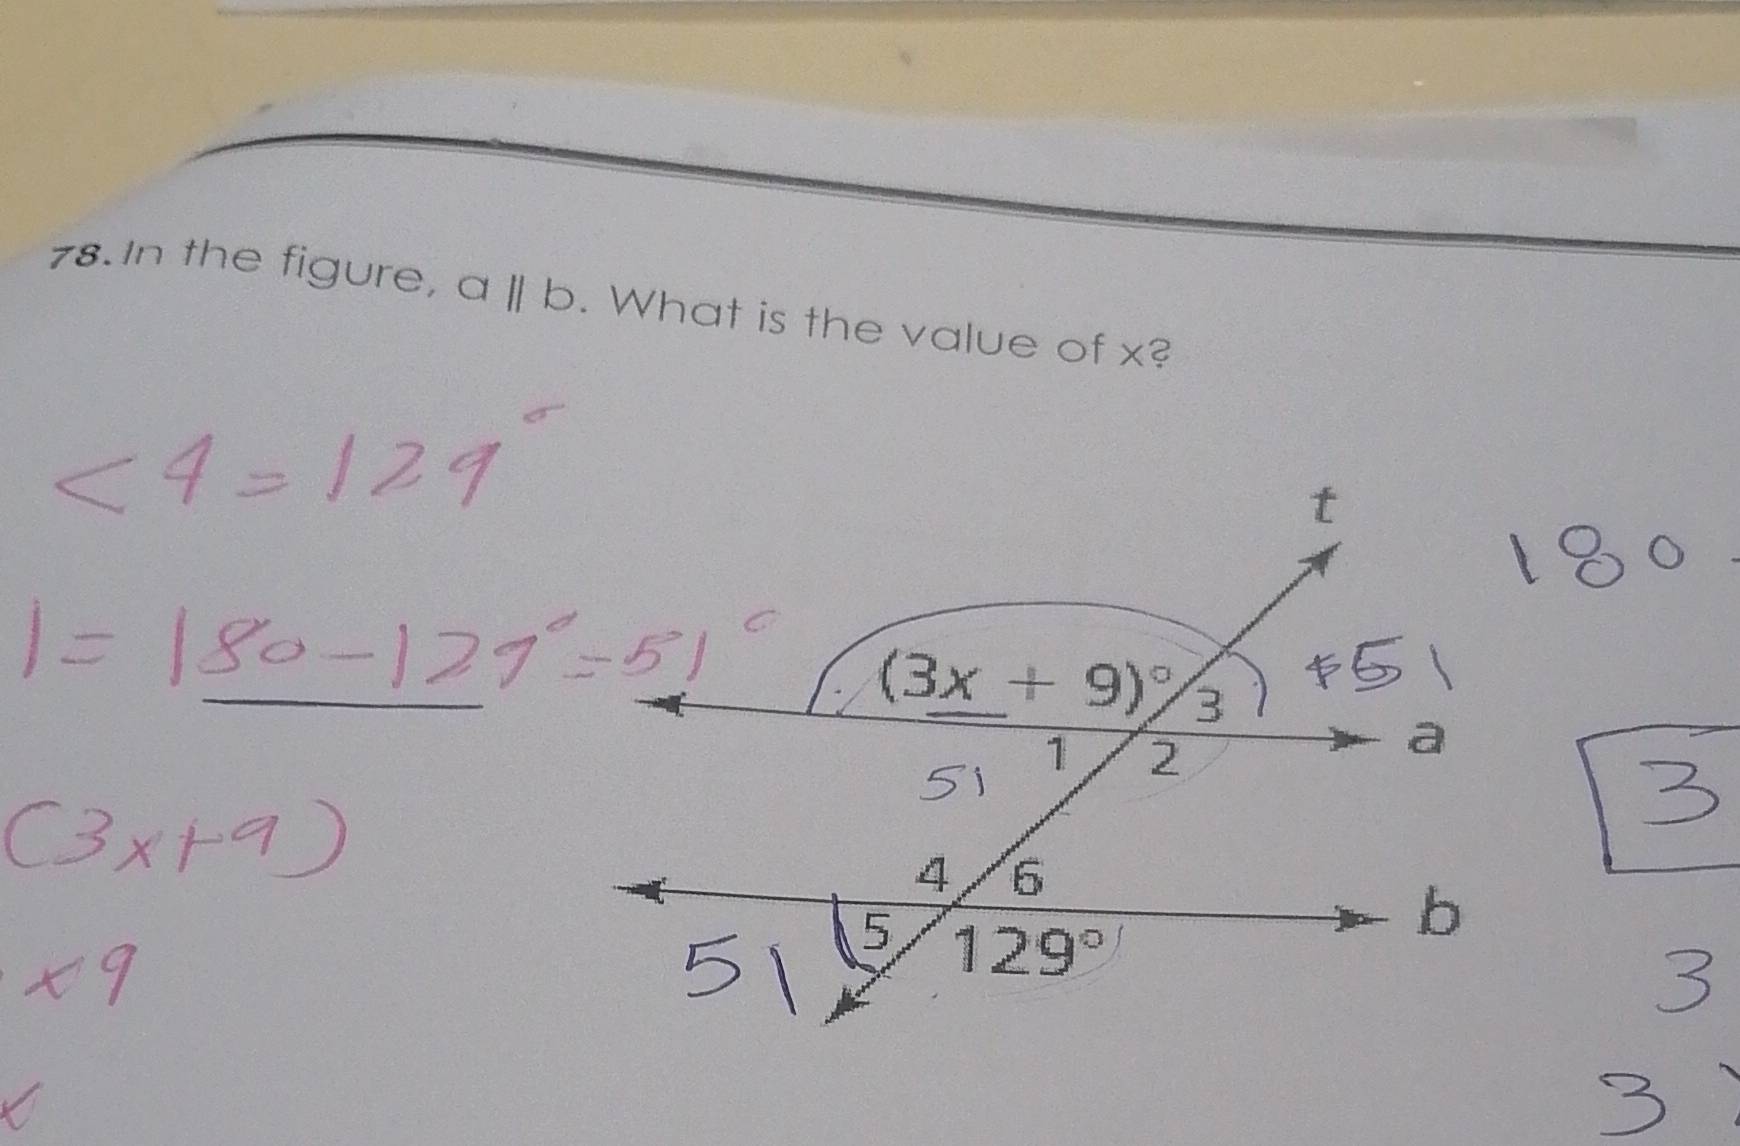 78. In the figure, a || b. What is the value of x?
<4 = 129°
1 = 180 - 129° = 51°
(3x+9)
x9
x
t
180
(3x + 9)°
3
51
a
1
2
51
3
4
6
b
5
129°
51
3
3